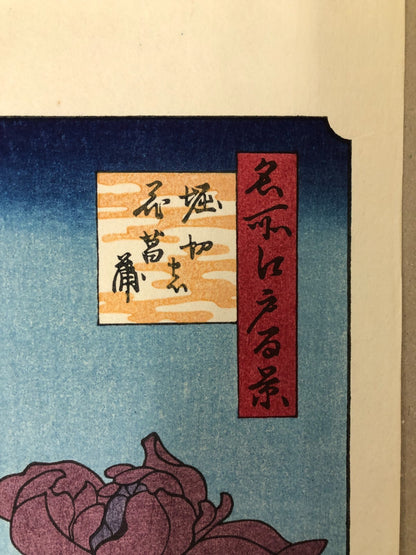 名所江戸百景
堀切の
花菖蒲